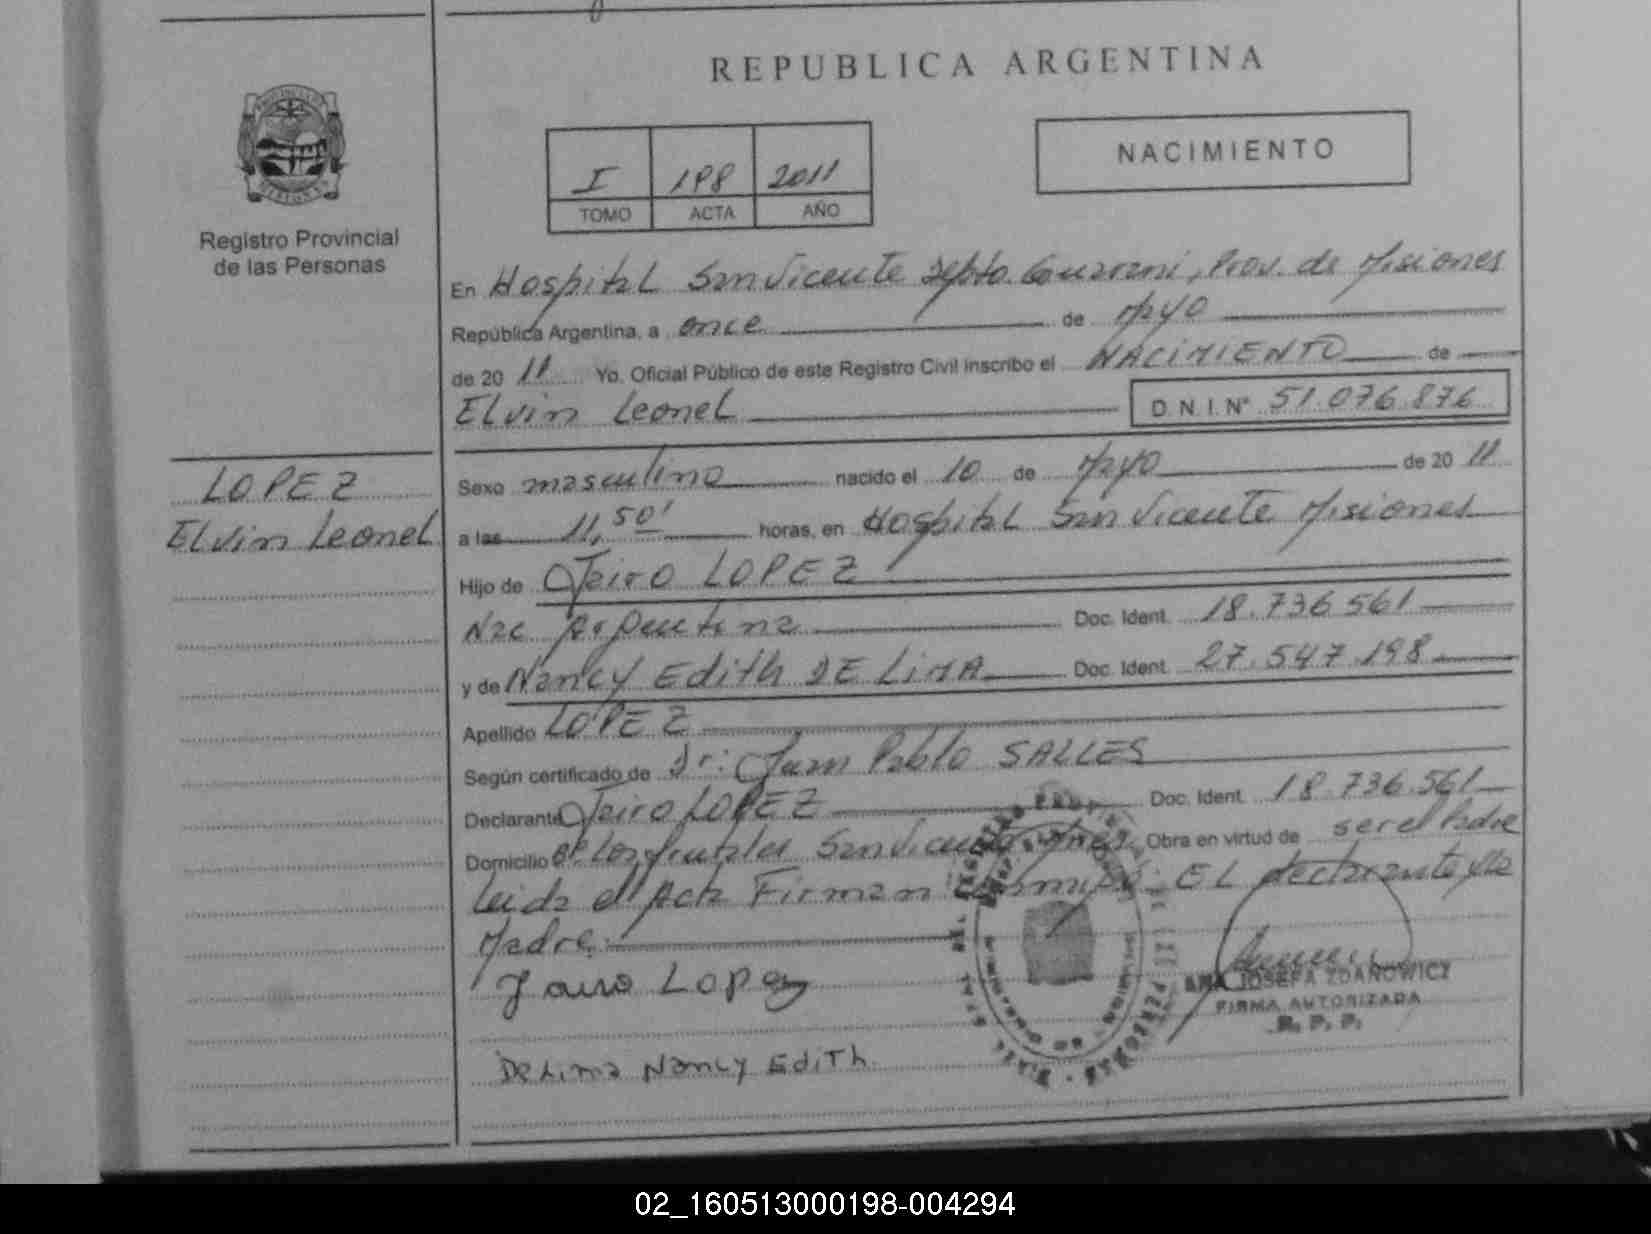 REPUBLICA ARGENTINA
NACIMIENTO
I 198 2011
TOMO ACTA AÑO
Registro Provincial
de las Personas
En Hospital San Vicente Depto. Guarani, Prov. de Misiones
República Argentina, a once de Mayo
de 20 11 Yo. Oficial Público de este Registro Civil inscribo el NACIMIENTO de
Elvin Leonel D.N.I.N° 51.076.876
LOPEZ
Elvin Leonel
Sexo masculino nacido el 10 de Mayo de 20 11
a las 11,50' horas, en Hospital San Vicente Misiones
Hijo de Jairo LOPEZ
Nac Argentina Doc. Ident. 18.736 561
y de Nancy Edith DE LIMA Doc. Ident. 27.547.198
Apellido LOPEZ
Según certificado de Dr: Juan Pablo SALLES
Declarante Jairo LOPEZ Doc. Ident. 18.736.561
Domicilio San Vicente Obra en virtud de ser el Padre
Leida el Acta Firman EL declarante y la
Madre.
Jairo Lopez
De Lima Nancy Edith.
ANA JOSEFA ZDANOWICZ
FIRMA AUTORIZADA
R. P. P.
02_160513000198-004294